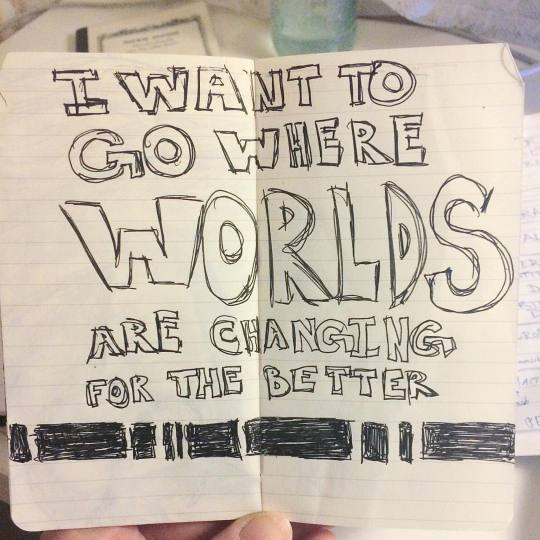 I WANT TO
GO WHERE
WORLDS
ARE CHANGING,
FOR THE BETTER